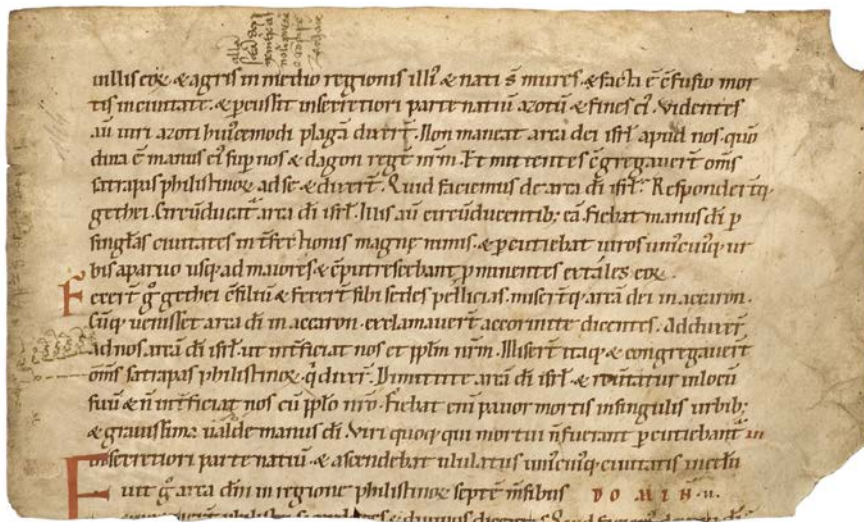 uillis eoꝝ & agris in medio regionis illiꝰ & nati s̄ mures & facta ē c̄fusio mor
tis in ciuitate. & p̄cussit in secretiori parte natiū azotū & fines eiꝰ. Videntes
aū uiri azoti huiꝰcemodi plagā dixer̄t. Non maneat arca dei isrł apud nos. qm̄
dura ē manus eiꝰ sup̄ nos & dagon regē nr̄m. Et mittentes c̄gregauer̄t om̄s
satrapas philistinoꝝ ad se & dixer̄t. Quid faciemus de arca dī isrł. Responder̄tq;
gethei. Circūducat̄ arca dī isrł. Illis aū circūducentib; eā. fiebat manus dī p̄
singłas ciuitates int̄fectionis magnę nimis. & percutiebat uiros uniꝰcuiꝰq; ur
bis a paruo usq; ad maiores. & c̄putrescebant p̄minentes extales eoꝝ.
Fecer̄t g̊ gethei c̄siliū & fecer̄t sibi sedes pelłicias. miser̄tq; arcā dei in accaron.
Cūq; uenisset arca dī in accaron. exclamauer̄t accoronite dicentes. Adduxer̄t
ad nos arcā dī isrł. ut int̄ficiat nos et ppłm nr̄m. Miser̄t itaq; & congregauer̄t
om̄s satrapas philistinoꝝ. q̄ dixer̄t. Dimittite arcā dī isrł. & reu̾tatur in locū
suū & ñ int̄ficiat nos cū ppło nr̄o. Fiebat eni pauor mortis in singulis urbib;
& grauissima ualde manus dī. Viri quoq; qui mortui ñ fuerant percutiebant̄ in
in secretiori parte natiū. & ascendebat ululatus uniꝰcuiꝰq; ciuitatis in celū
Fuit g̊ arca dn̄i in regione philistinoꝝ septē m̄sibus DOMIN.U.